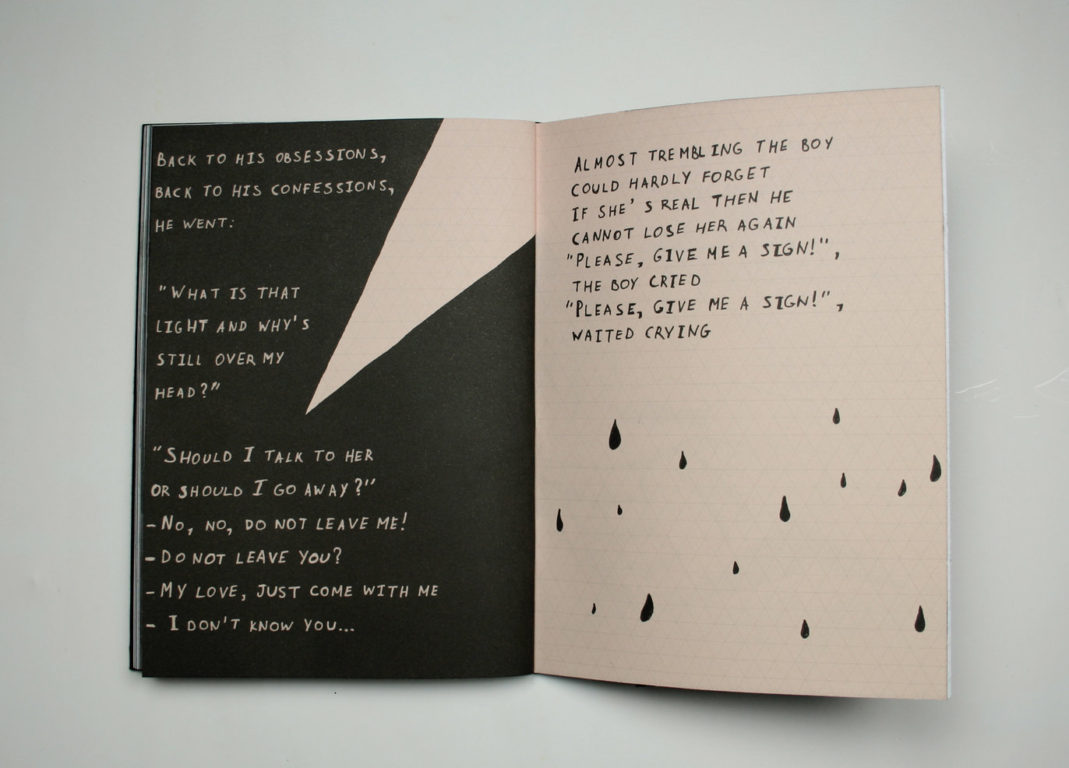 BACK TO HIS OBSESSIONS,
BACK TO HIS CONFESSIONS,
HE WENT:
"WHAT IS THAT
LIGHT AND WHY'S
STILL OVER MY
HEAD?"
"SHOULD I TALK TO HER
OR SHOULD I GO AWAY?"
- NO, NO, DO NOT LEAVE ME!
- DO NOT LEAVE YOU?
- MY LOVE, JUST COME WITH ME
- I DON'T KNOW YOU...
ALMOST TREMBLING THE BOY
COULD HARDLY FORGET
IF SHE'S REAL THEN HE
CANNOT LOSE HER AGAIN
"PLEASE, GIVE ME A SIGN!",
THE BOY CRIED
"PLEASE, GIVE ME A SIGN!",
WAITED CRYING